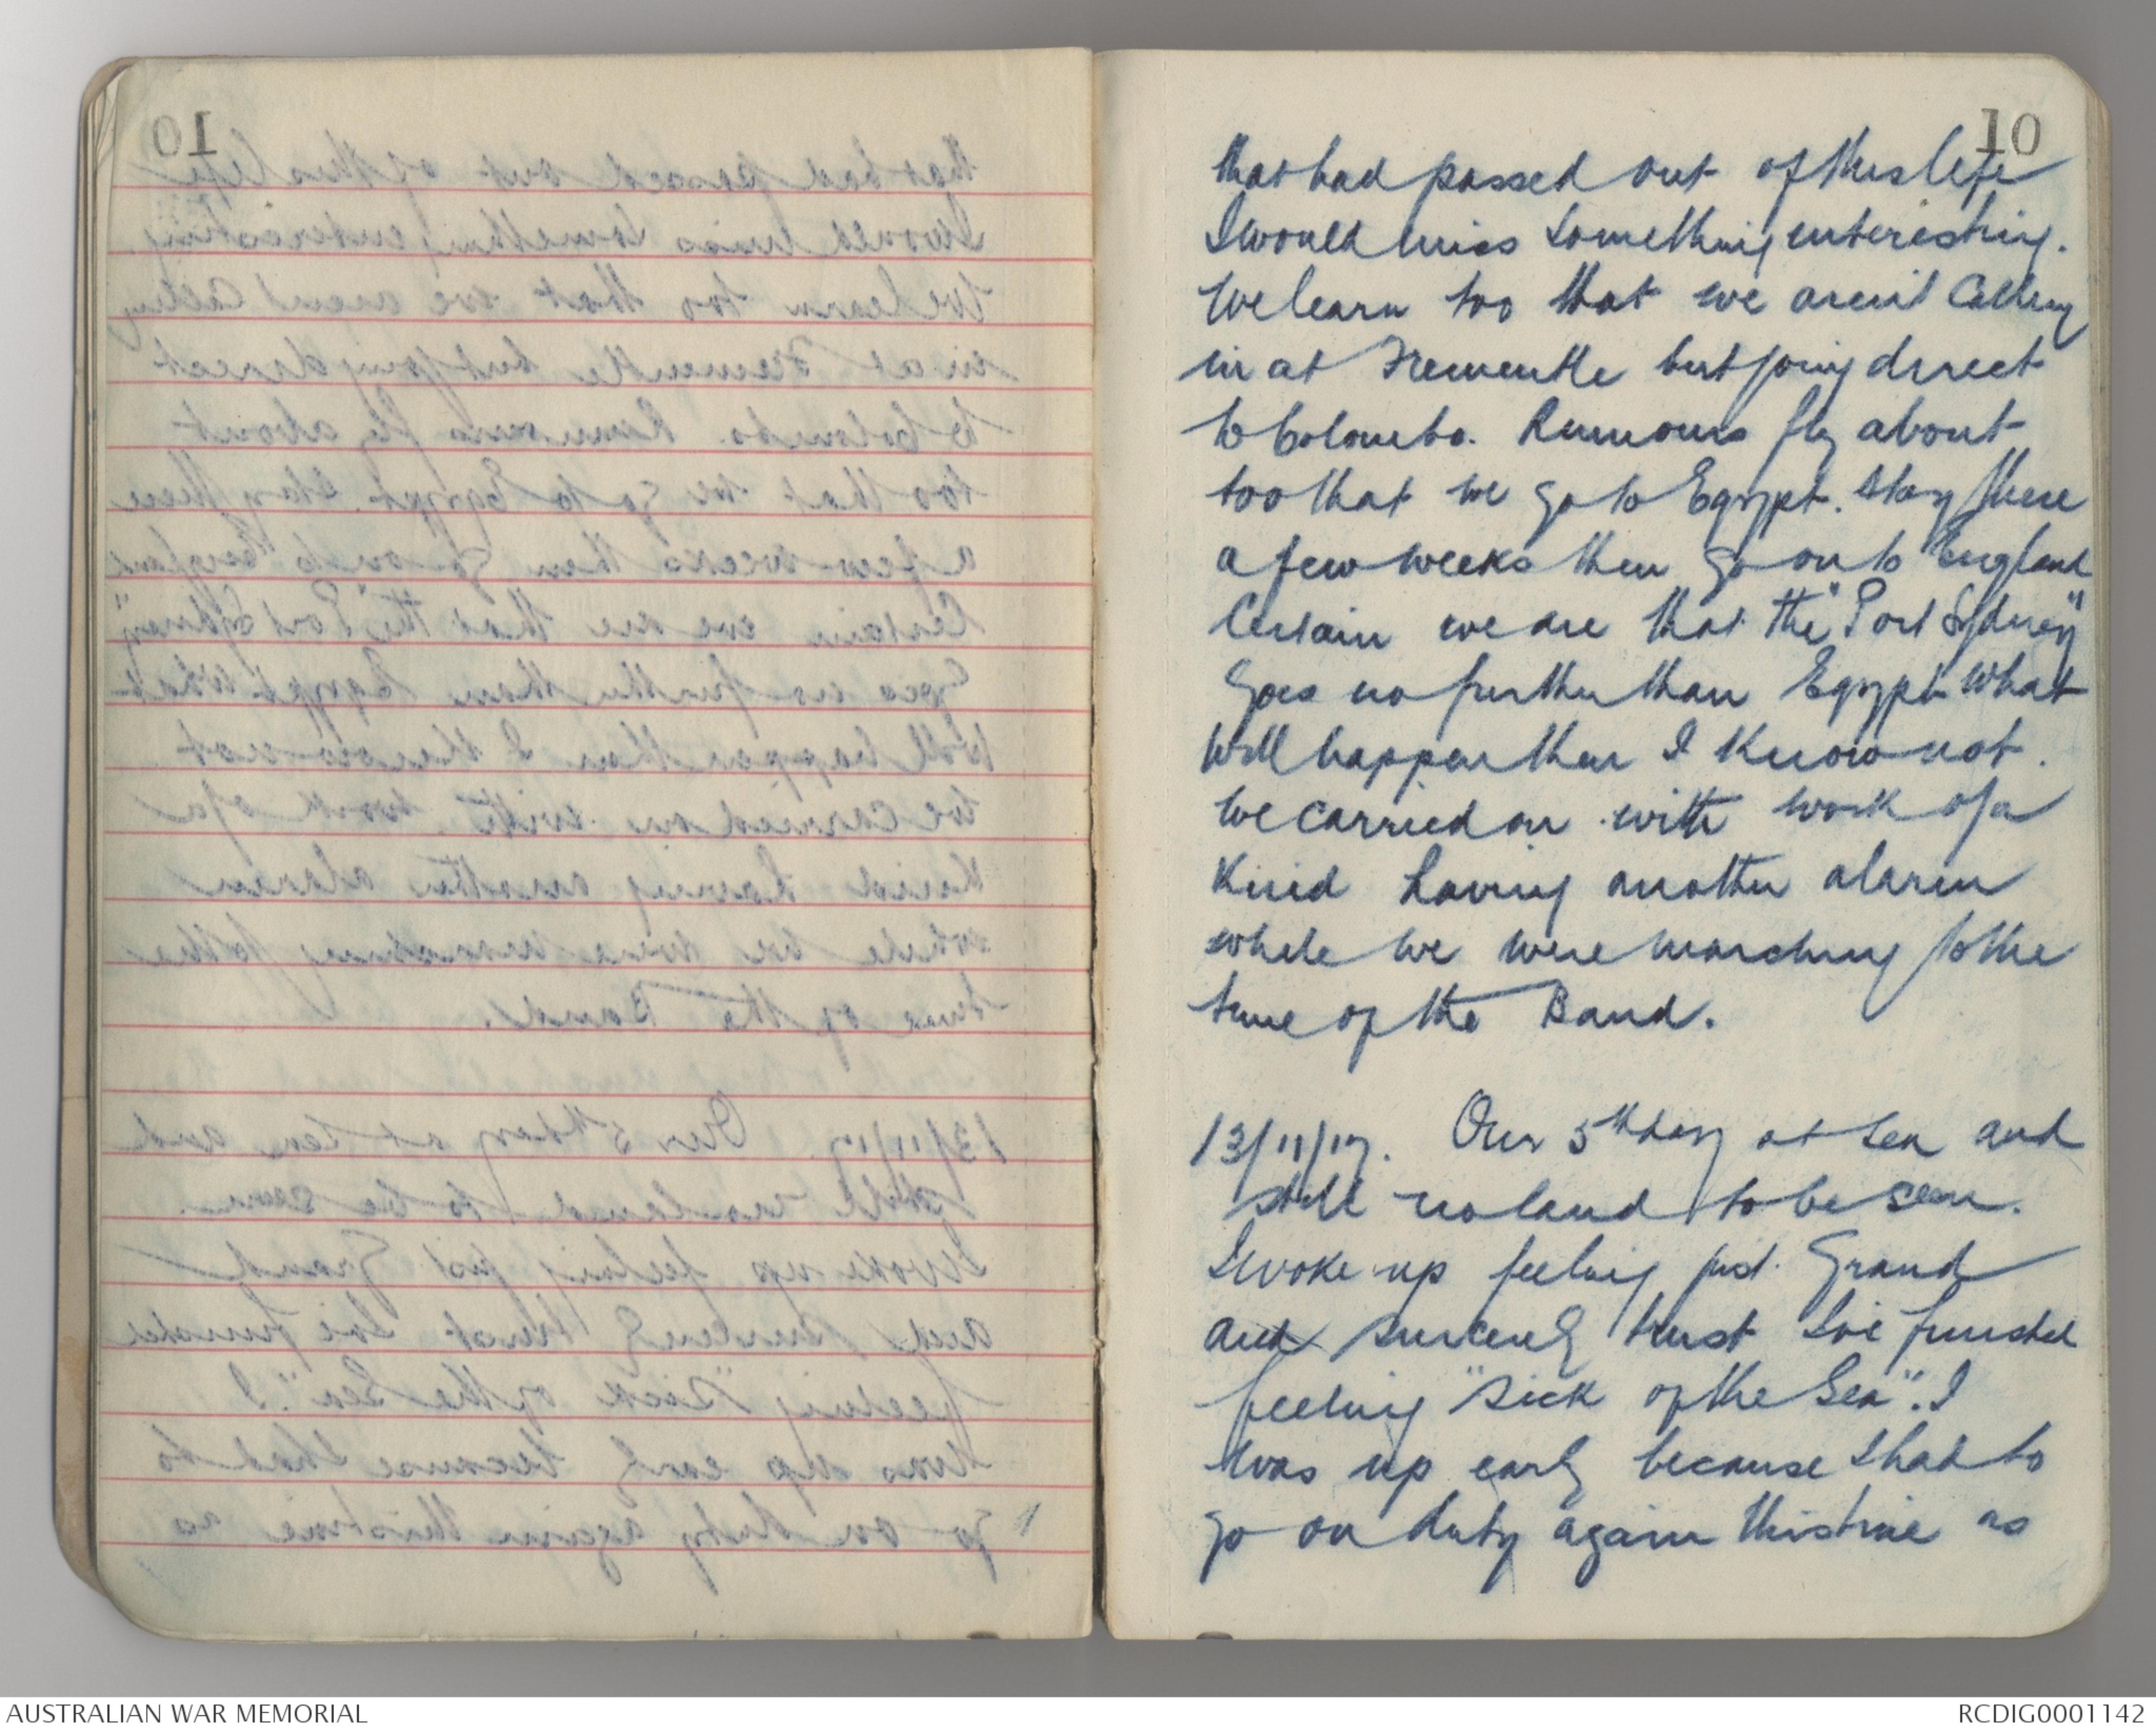 10
that had passed out of this life
I would miss something interesting.
We learn too that we aren't calling
in at Fremantle but going direct
to Colombo. Rumours fly about
too that we go to Egypt. Stay there
a few weeks then go on to England
Certain we are that the "Port Sydney"
goes no further than Egypt what
will happen then I know not.
We carried on with work of a
kind having another alarm
while we were marching to the
tune of the Band.
13/11/17. Our 5th day at sea and
still no land to be seen.
I woke up feeling just Grand
and sincerely trust I've finished
feeling "Sick of the Sea". I
was up early because I had to
go on duty again this time as
AUSTRALIAN WAR MEMORIAL
RCDIG0001142